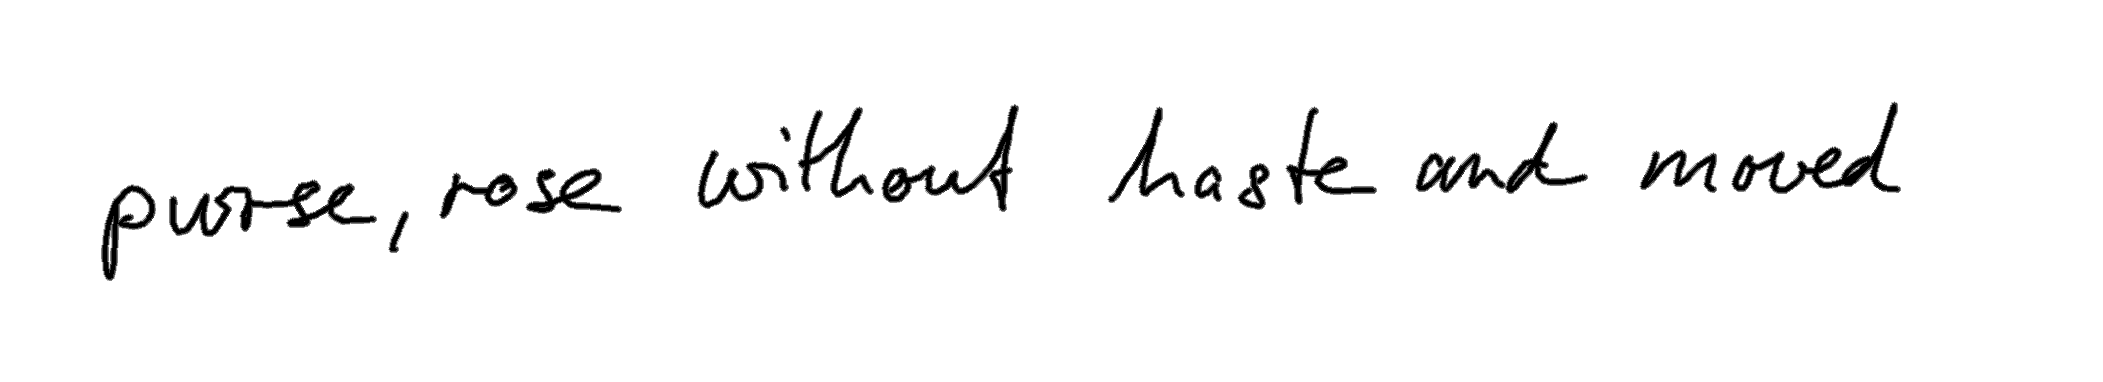 purse, rose without haste and moved